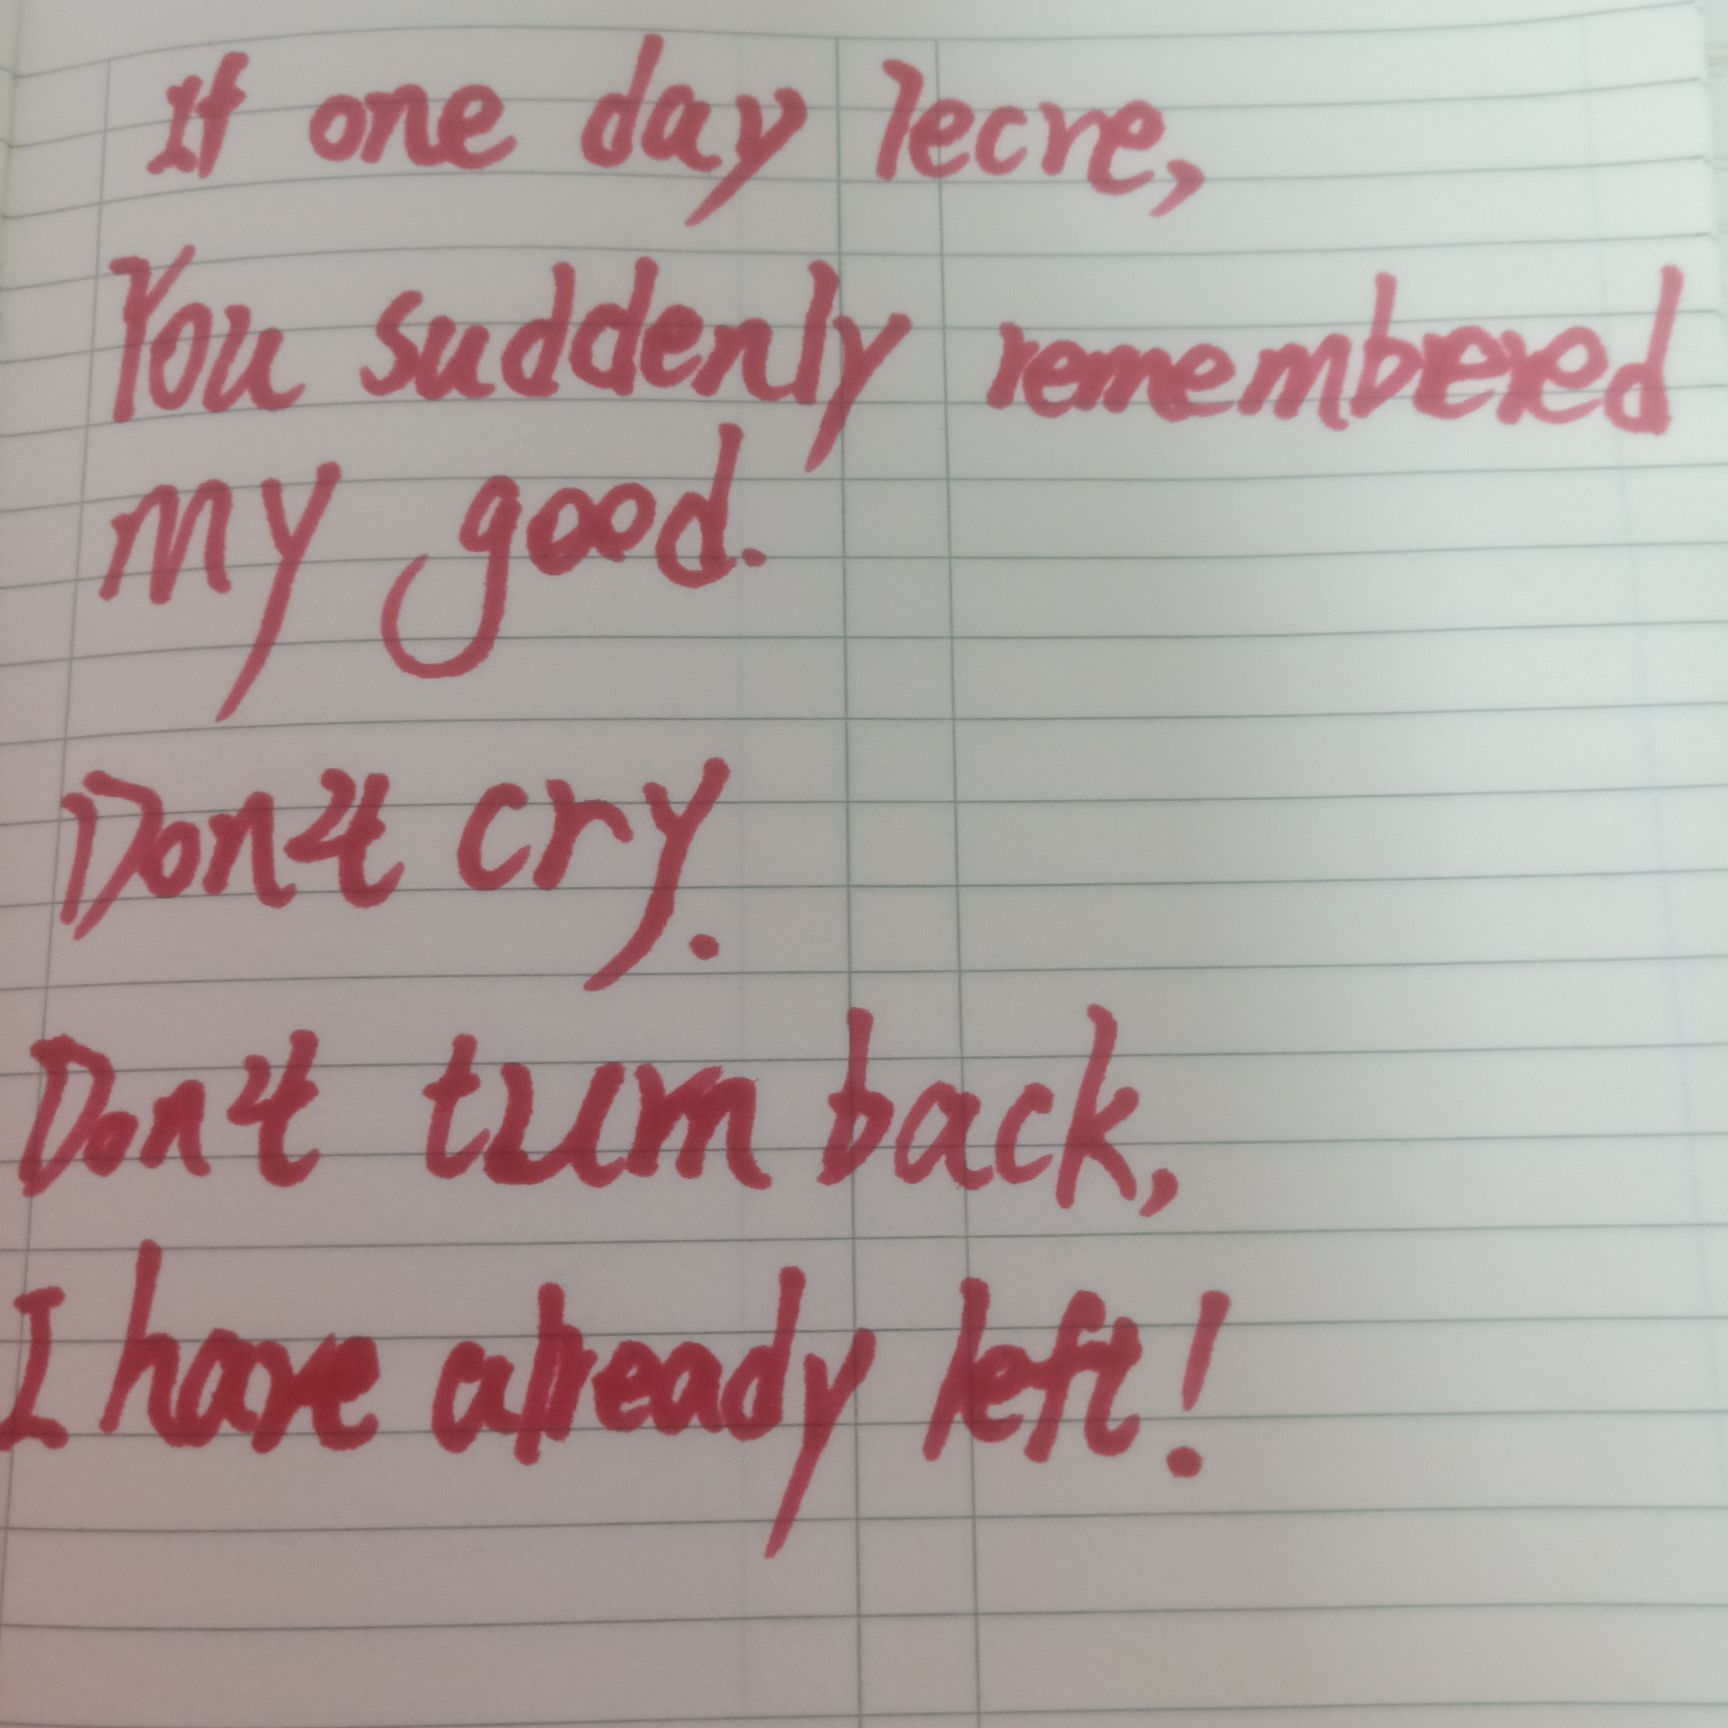 If one day lecre,
You suddenly remembered
my good.
Don't cry.
Don't turn back,
I have already left!